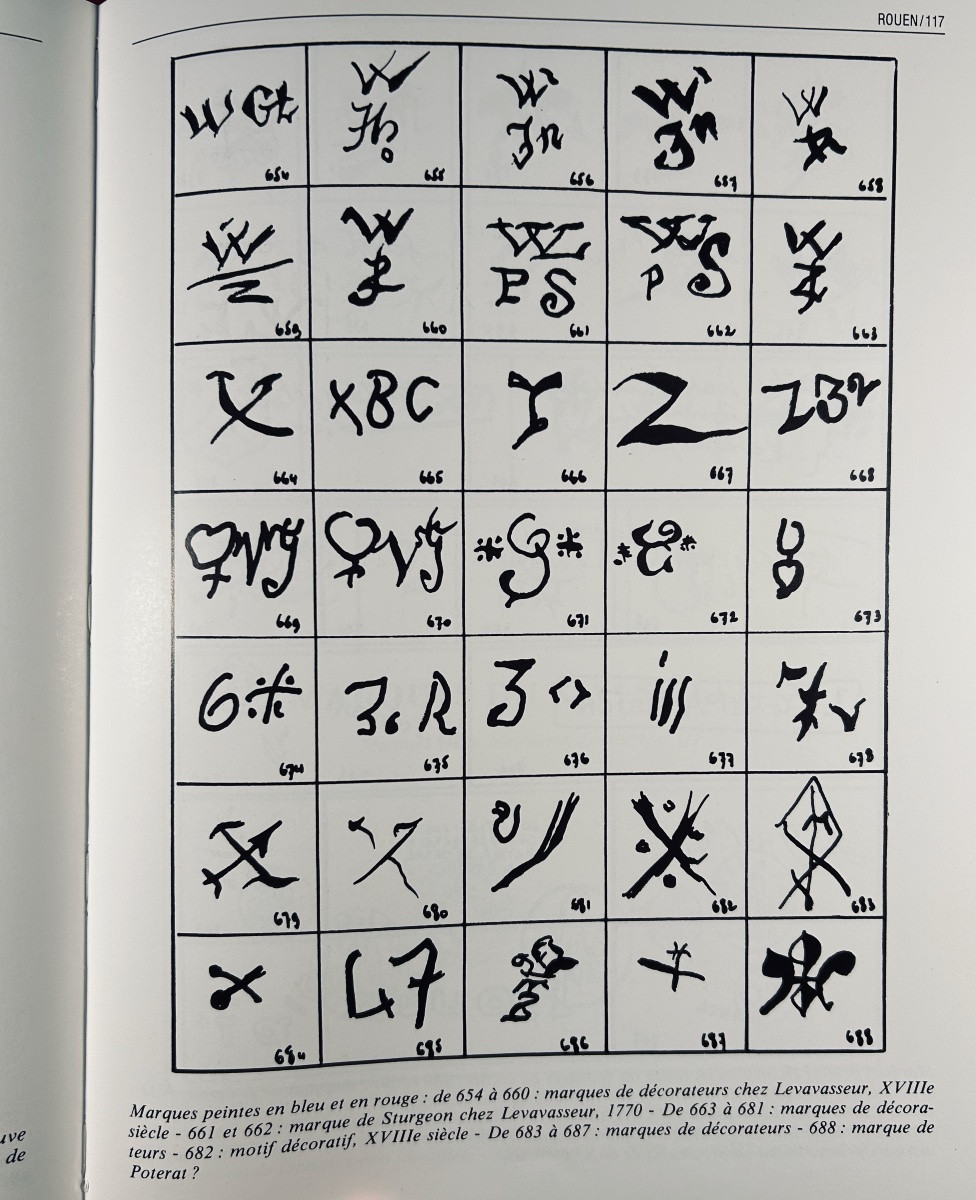 ROUEN/117
W Gt
654
W
655
W
Jn
656
W
Jn
657
W
658
W
659
W
660
W
P S
661
W S
P
662
W
663
X
664
XBC
665
666
Z
667
Z3
668
669
670
671
672
673
6
674
3. R
675
3 <>
676
677
678
679
680
681
682
683
684
L7
685
686
687
688
Marques peintes en bleu et en rouge : de 654 à 660 : marques de décorateurs chez Levavasseur, XVIIIe
siècle - 661 et 662 : marque de Sturgeon chez Levavasseur, 1770 - De 663 à 681 : marques de décora-
teurs - 682 : motif décoratif, XVIIIe siècle - De 683 à 687 : marques de décorateurs - 688 : marque de
Poterat ?
uve
de